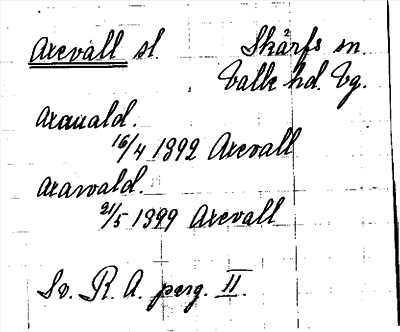 Arevall sl. Skärfs sn.
Valle hd. Vg.
Arauald.
16/4 1392 Arevall
Arawald.
21/5 1399 Arevall
Sv. R. A. perg. II.